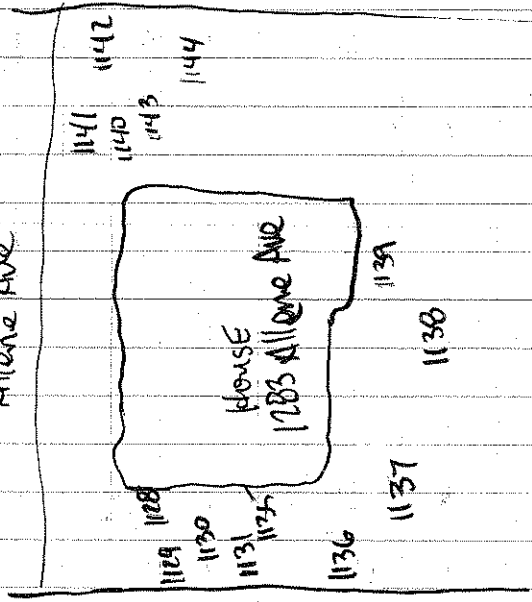 Allene Ave
1142
1144
1141
1140
1143
House
1283 Allene Ave
1139
1138
1128
1129
1130
1131
1136
1137